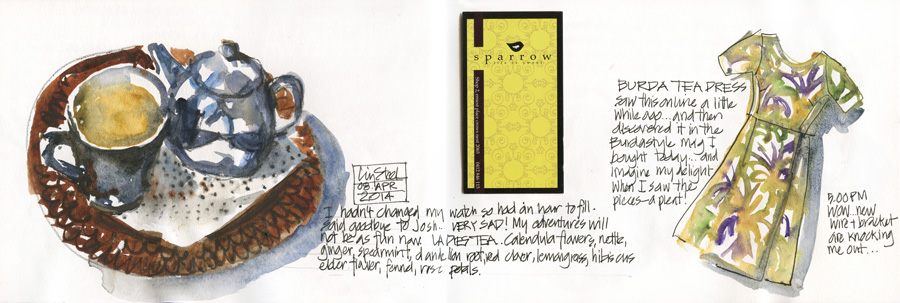 Liz Steel
08 APR
2014
I hadn't changed my watch so had an hour to fill.
Said goodbye to Josh... VERY SAD! My adventures will
not be as fun now LADIES TEA. Calendula-flowers, nettle,
ginger, spearmint, dandelion root, red clover, lemongrass, hibiscus
elder flower, fennel, rose petals.
sparrow
BURDA TEA DRESS
saw this online a little
while ago... and then
discovered it in the
Burdastyle mag I
bought today... and
imagine my delight
when I saw the
pieces - a pleat!
5.00PM
wow... new
wire + bracket
are knocking
me out...